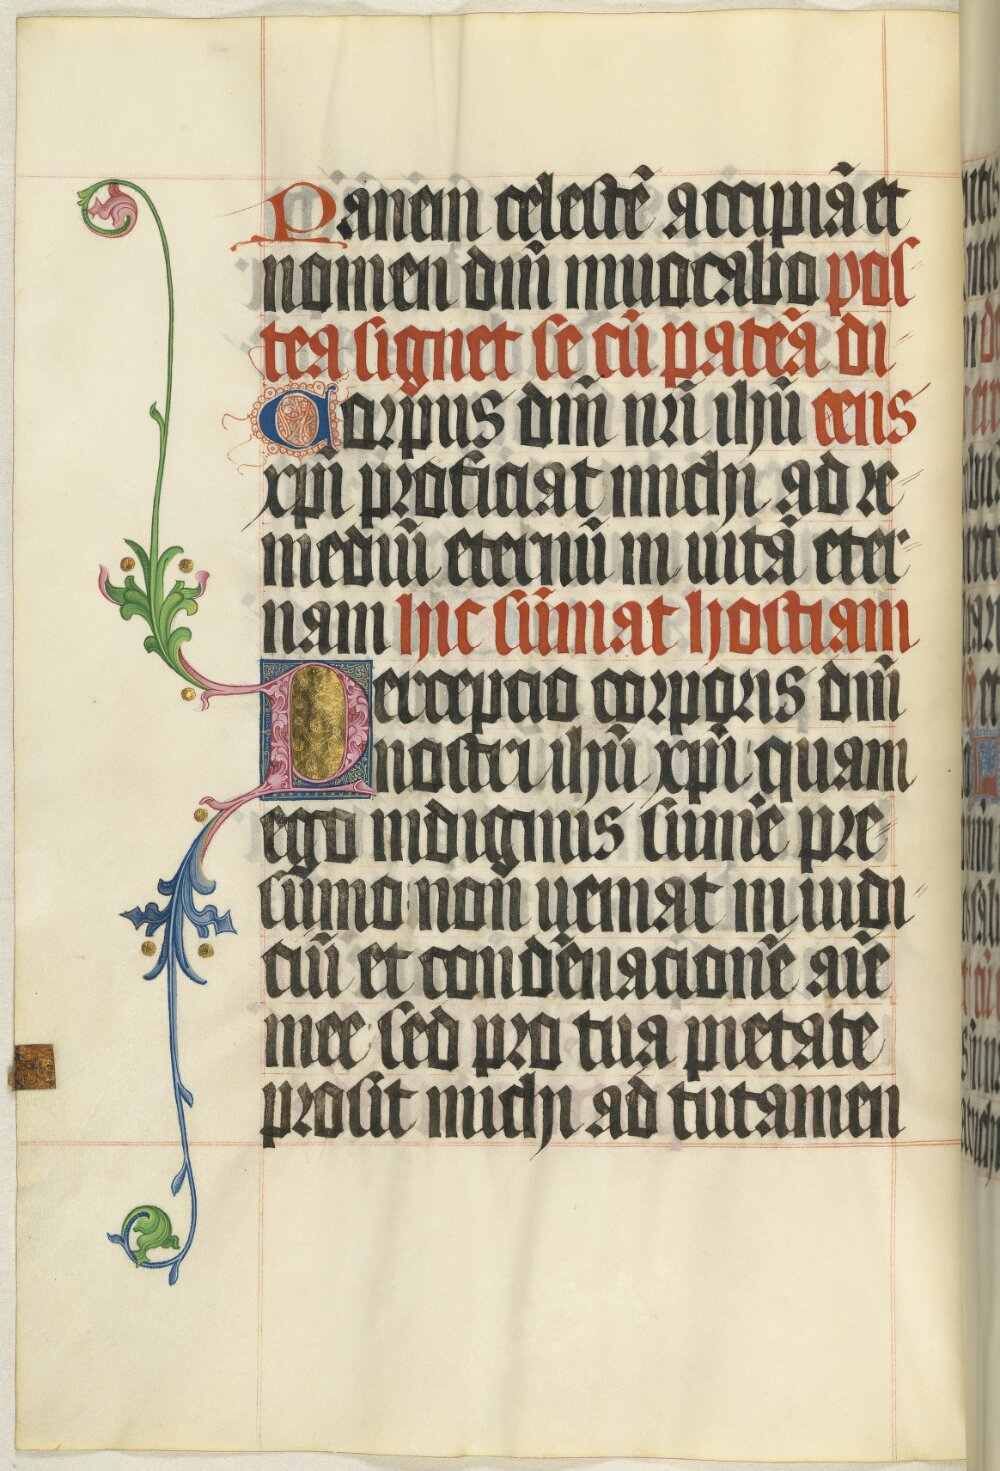 Panem celestē accipiā et
nomen dm̄ inuocabo pos
tea signet se cū patēa di
Corpus dm̄ nr̄i ihū cens
xp̄i proficiat michi ad re
mediū eternū in uitā eter
nam hic sūmat hostiam
Percepcio corporis dm̄
nostri ihū xp̄i quam
ego indignus sumē pre
sumo non ueniat in iudi
ciū et condēnacionē aīe
mee sed pro tua pietate
prosit michi ad tutamen